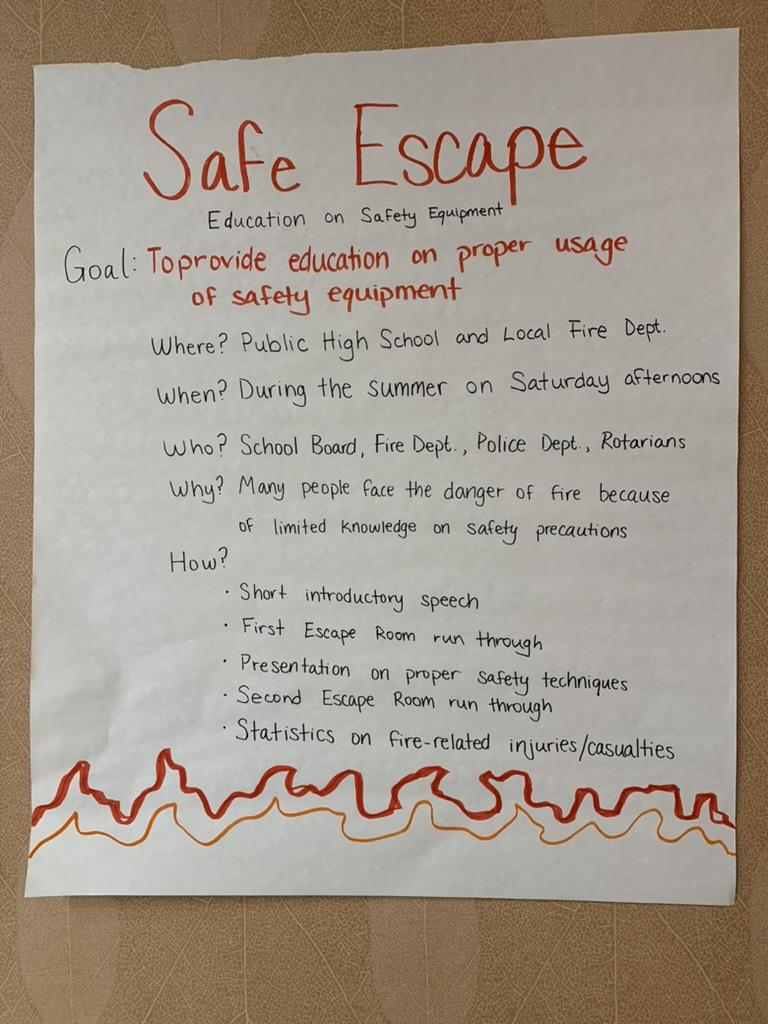 Safe Escape
Education on Safety Equipment
Goal: To provide education on proper usage
of safety equipment
Where? Public High School and Local Fire Dept.
When? During the summer on Saturday afternoons
Who? School Board, Fire Dept., Police Dept., Rotarians
Why? Many people face the danger of fire because
of limited knowledge on safety precautions
How?
· Short introductory speech
· First Escape Room run through
· Presentation on proper safety techniques
· Second Escape Room run through
· Statistics on fire-related injuries/casualties